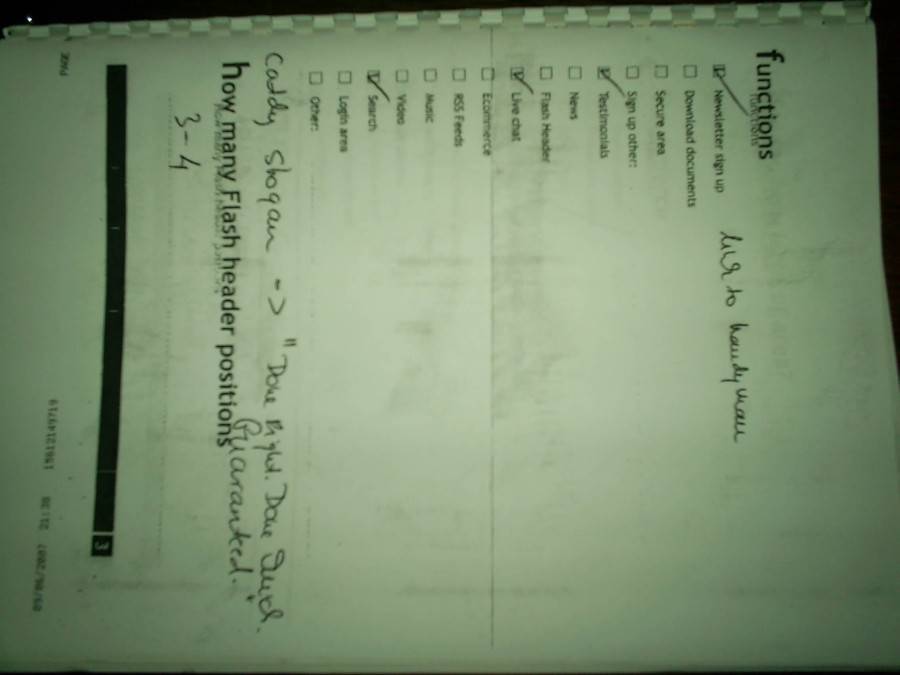 functions
Newsletter sign up
Download documents
Secure area
Sign up other:
Testimonials
News
Flash Header
Live chat
Ecommerce
RSS Feeds
Music
Video
Search
Login area
Other:
to handyman
Caddy slogan -> "Done Right. Done Quick.
Guaranteed."
how many Flash header positions
3-4
3
PAGE
09/06/2007 21:38